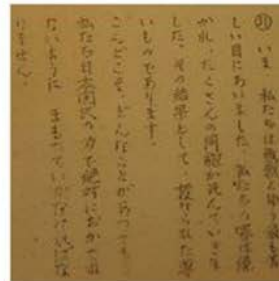 ㉛ いま 私たちは
しい目にあいました。私たちの家は焼
かれ、たくさんの同胞が死んでいきま
した。その結果として、授けられた尊
いものであります。
こんどこそ、どんなことがあっても
私たち日本国民の力で絶対におかされ
ないように まもっていかなければな
りません。